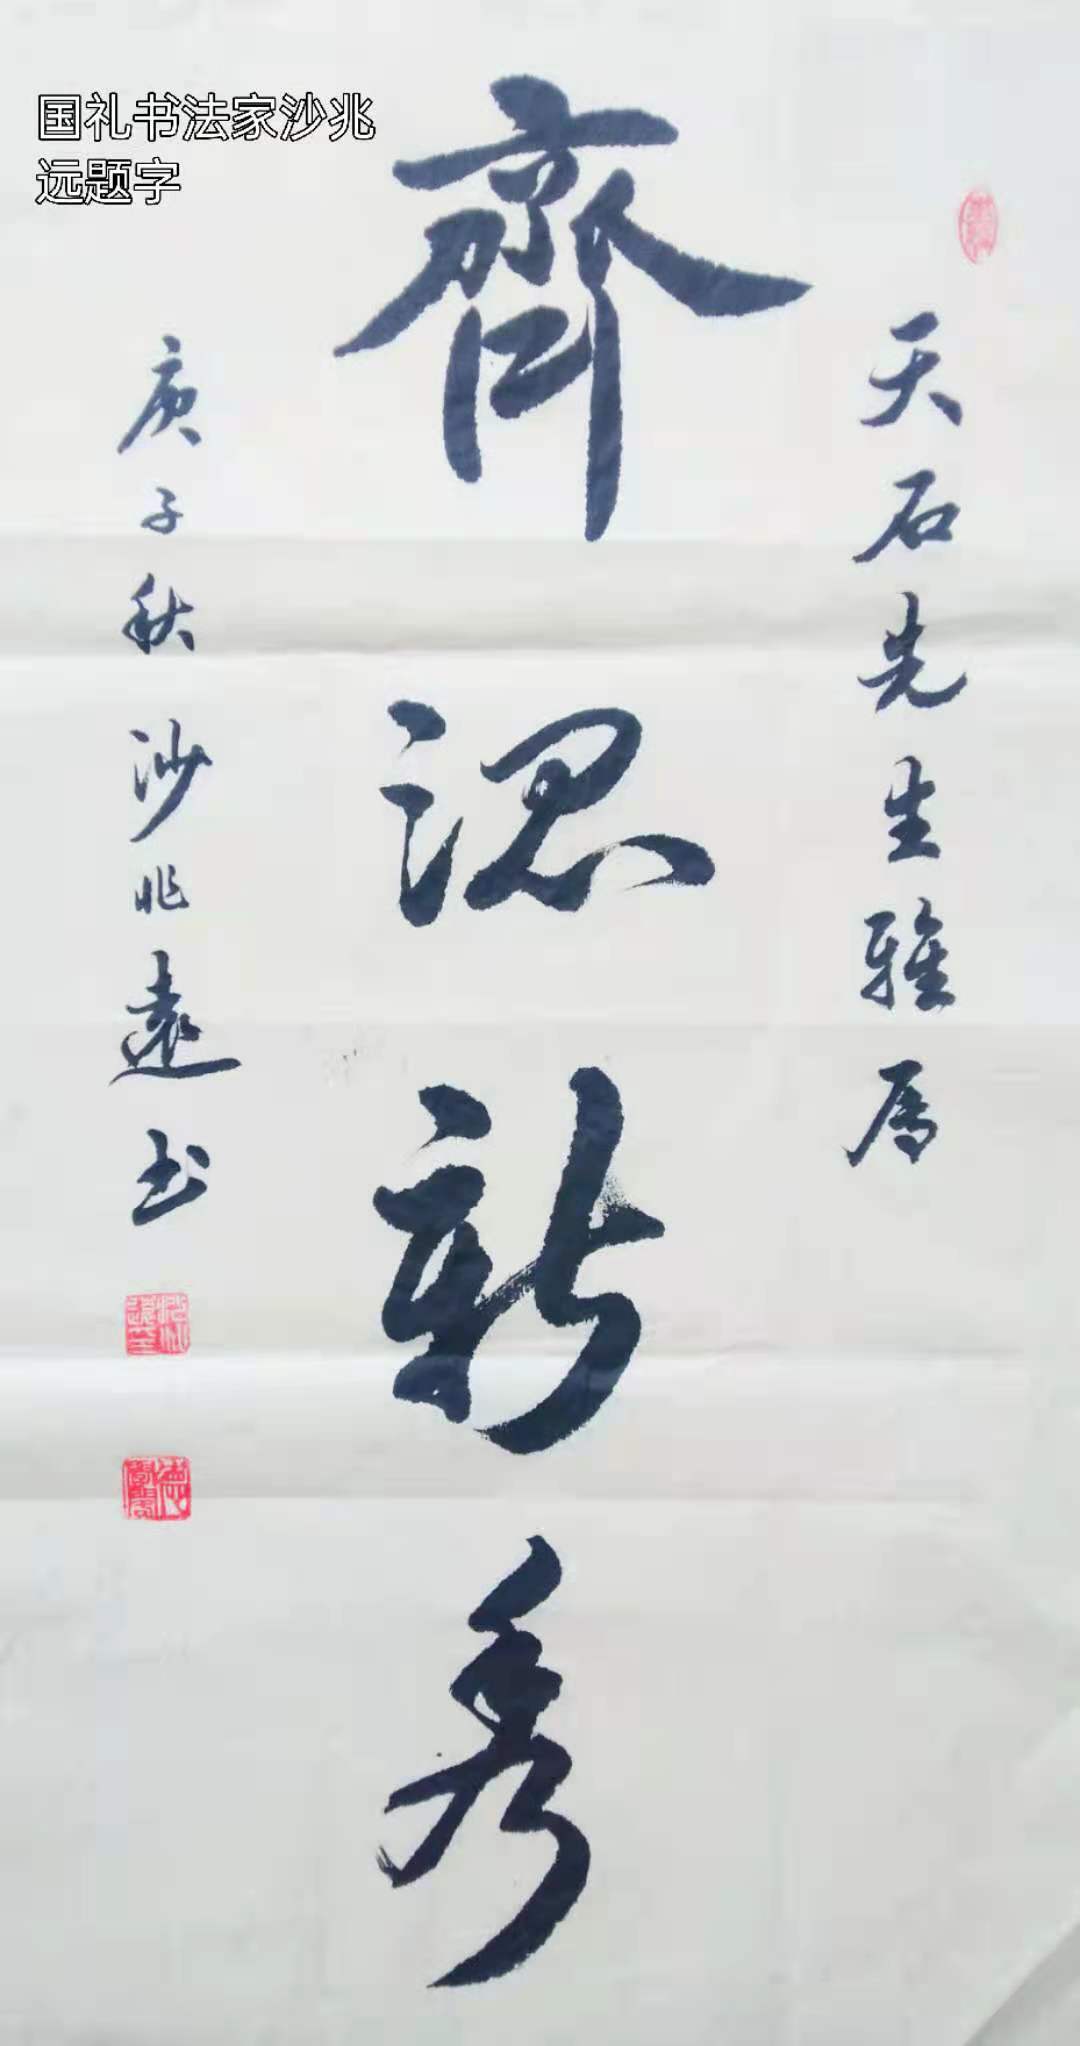 国礼书法家沙兆
远题字
天石先生雅属
齊派新秀
庚子秋 沙兆遠书